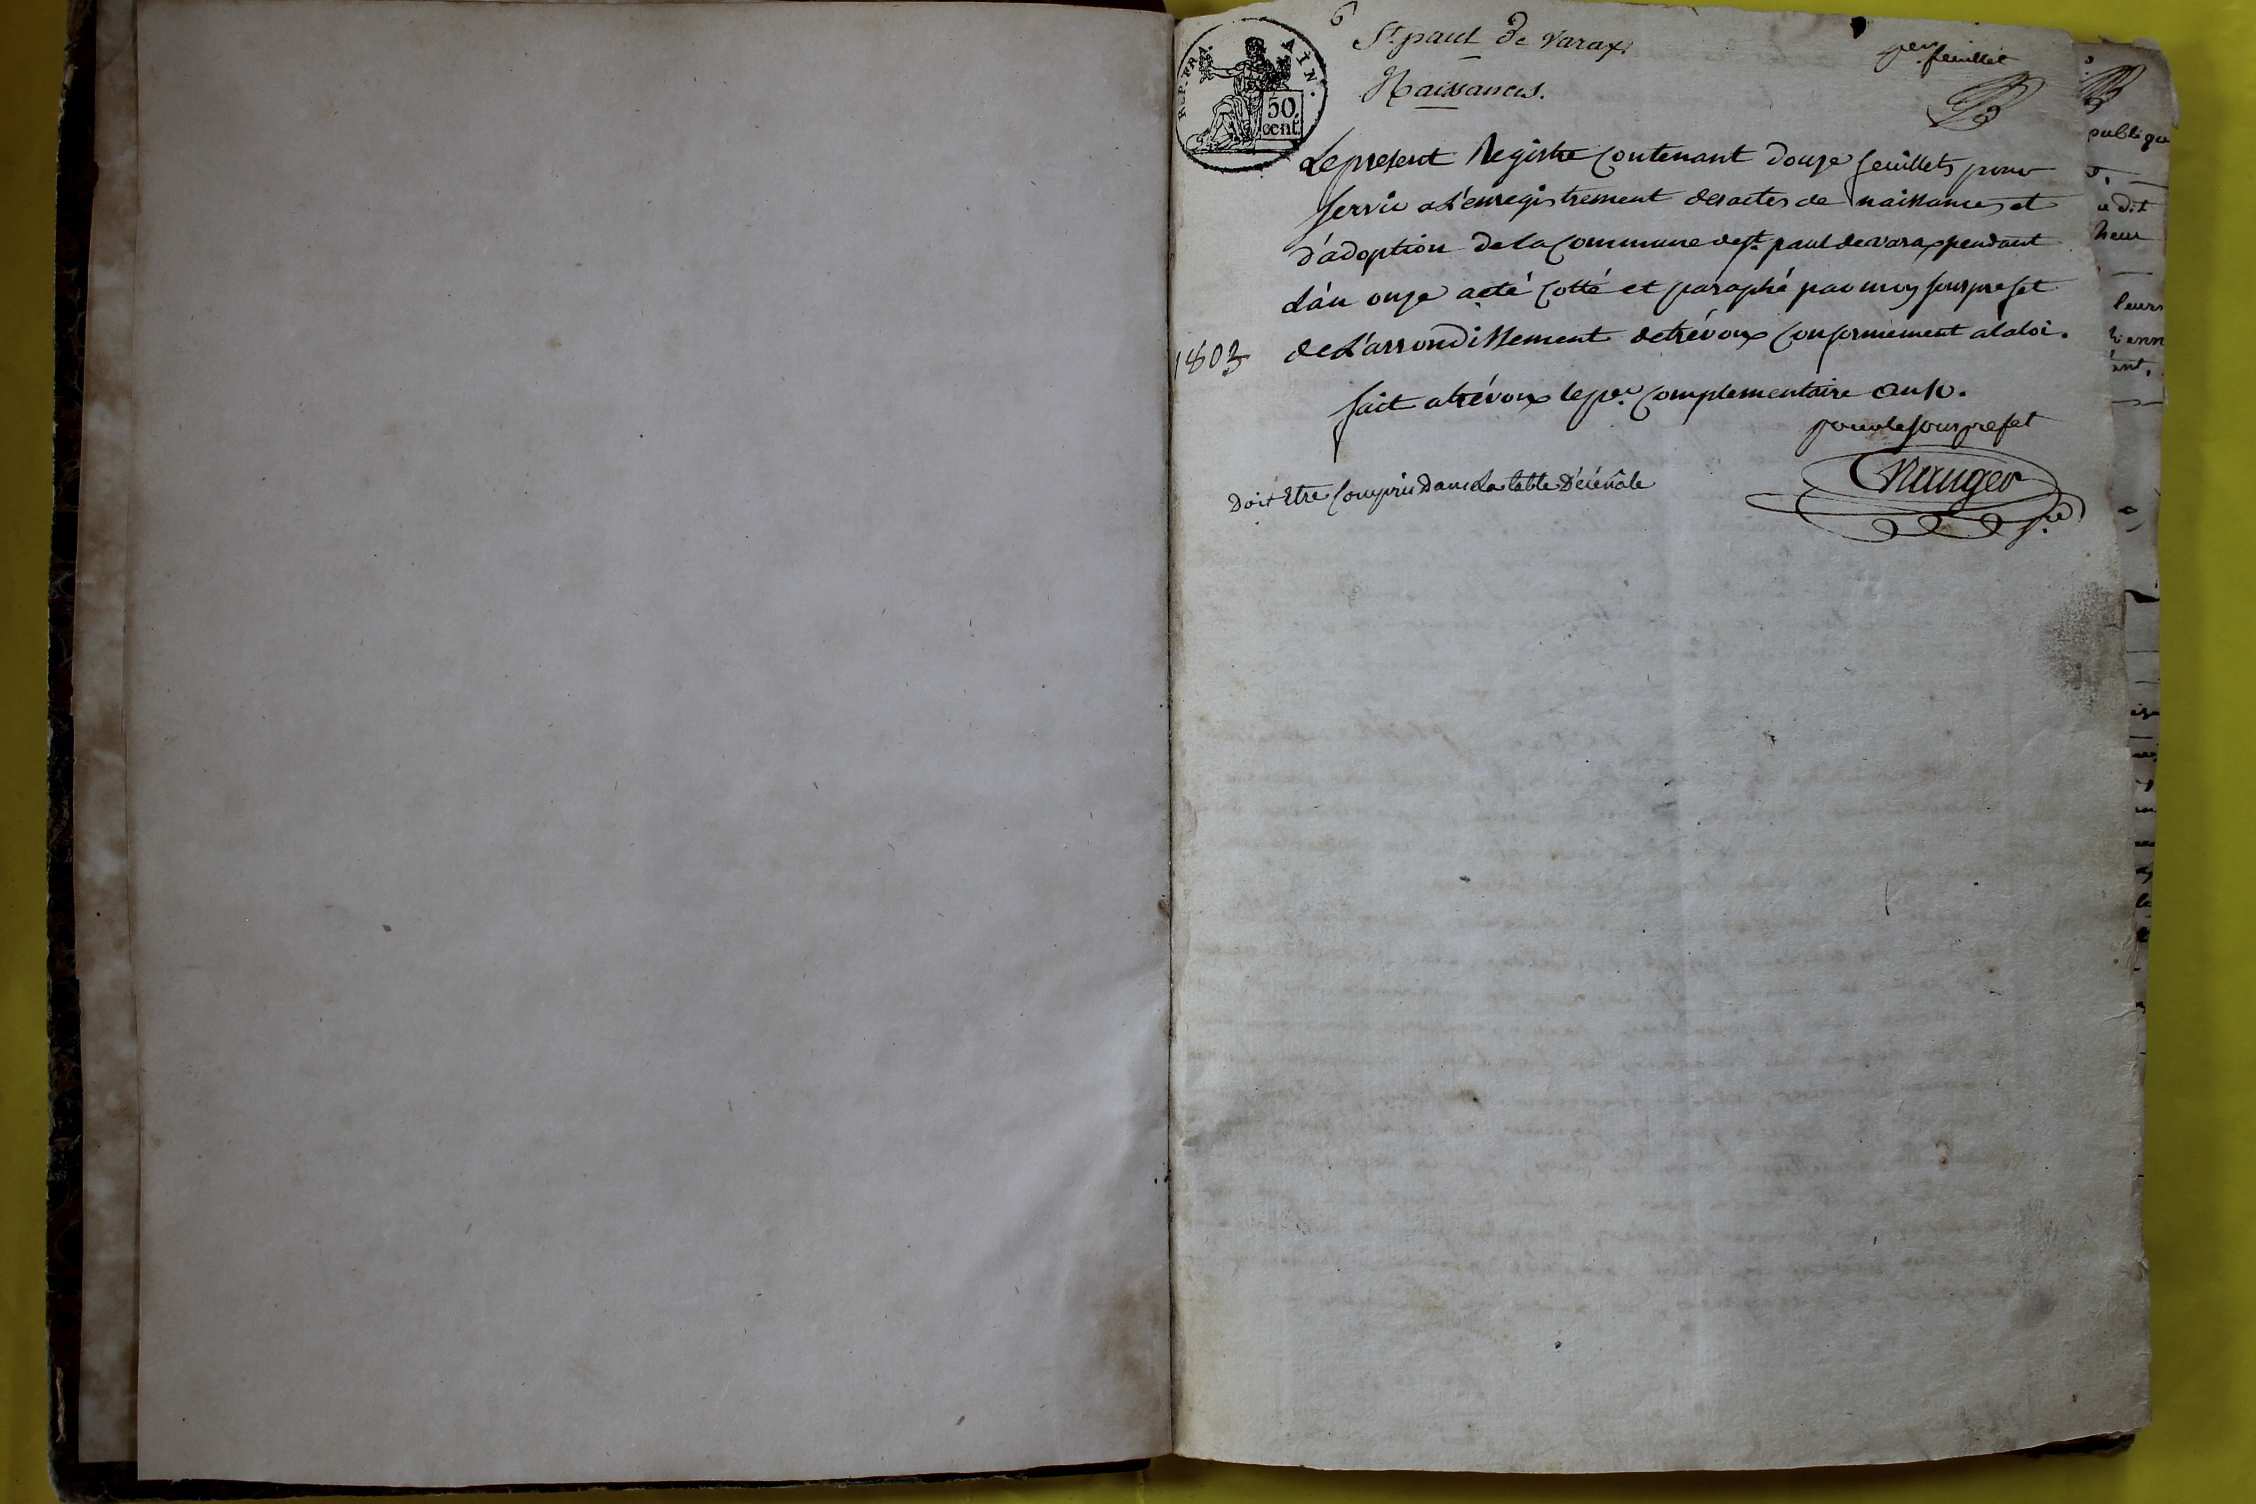 6
St paul De Varax
per feuillet
Naissances.
REP. FRA. AIN.
50
cent.
Le present Registre Contenant douze feuillets pour
servir a L'enregistrement des actes de naissances et
d'adoption de la Commune de St. paul de varax pendant
L'án onze a eté Cotté et paraphé par moy sous prefet
1803
de L'arrondissement de trévoux Conformement a la loi.
fait a trévoux le per. Complementaire an 10.
pour le sous prefet
Doit Etre Compris Dans La table Décénâle
publique
dit
heur
leurs